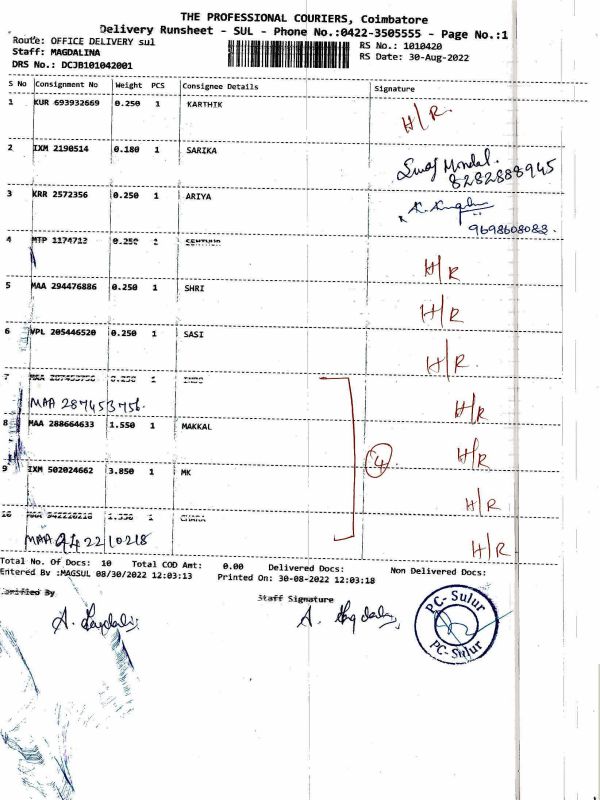 THE PROFESSIONAL COURIERS, Coimbatore
Delivery Runsheet - SUL - Phone No.:0422-3505555 - Page No.:1
Route: OFFICE DELIVERY sul
RS No.: 1010420
Staff: MAGDALINA
RS Date: 30-Aug-2022
DRS No.: DCJB101042001
S No Consignment No Weight PCS Consignee Details Signature
1 KUR 693932669 0.250 1 KARTHIK H/R
2 IXM 2190514 0.180 1 SARIKA
Mondal.
8282888945
3 KRR 2572356 0.250 1 ARIYA
9698608088.
4 MTP 1174713 0.250 1 H/R
5 MAA 294476886 0.250 1 SHRI H/R
6 VPL 205446520 0.250 1 SASI H/R
7 MAA 287453756 0.250 1
MAA 287453756. H/R
8 MAA 288664633 1.550 1 MAKKAL H/R
4
9 IXM 502024662 3.850 1 MK H/R
10 MAA 942210218 1
MAA 942210218 H/R
Total No. Of Docs: 10 Total COD Amt: 0.00 Delivered Docs: Non Delivered Docs:
Entered By :MAGSUL 08/30/2022 12:03:13 Printed On: 30-08-2022 12:03:18
Verified By Staff Signature
PC-Sulur
PC-Sulur